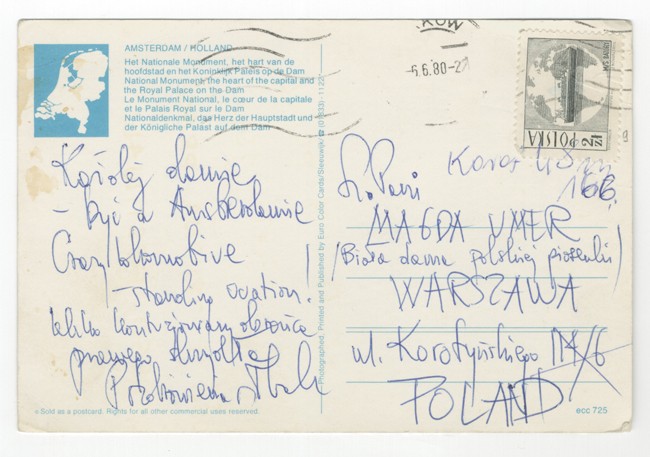 AMSTERDAM / HOLLAND
Het Nationale Monument, het hart van de
hoofdstad en het Koninklijk Paleis op de Dam
National Monument, the heart of the capital and
the Royal Palace on the Dam
Le Monument National, le cœur de la capitale
et le Palais Royal sur le Dam
Nationaldenkmal, das Herz der Hauptstadt und
der Königliche Palast auf dem Dam
Każdej damie
– być a Amsterdamie
standing ovation!
lekko kontuzjowany obrońca
prawego skrzydła
Sold as a postcard. Rights for all other commercial uses reserved.
Photographed, Printed and Published by Euro Color Cards/Sleeuwijk
KÓW
-6.6.80-2
POLSKA
2 ZŁ
Sz. Pani
MAGDA UMER
(Biała dama polskiej piosenki)
WARSZAWA
ul. Korotyńskiego
POLAND
ecc 725